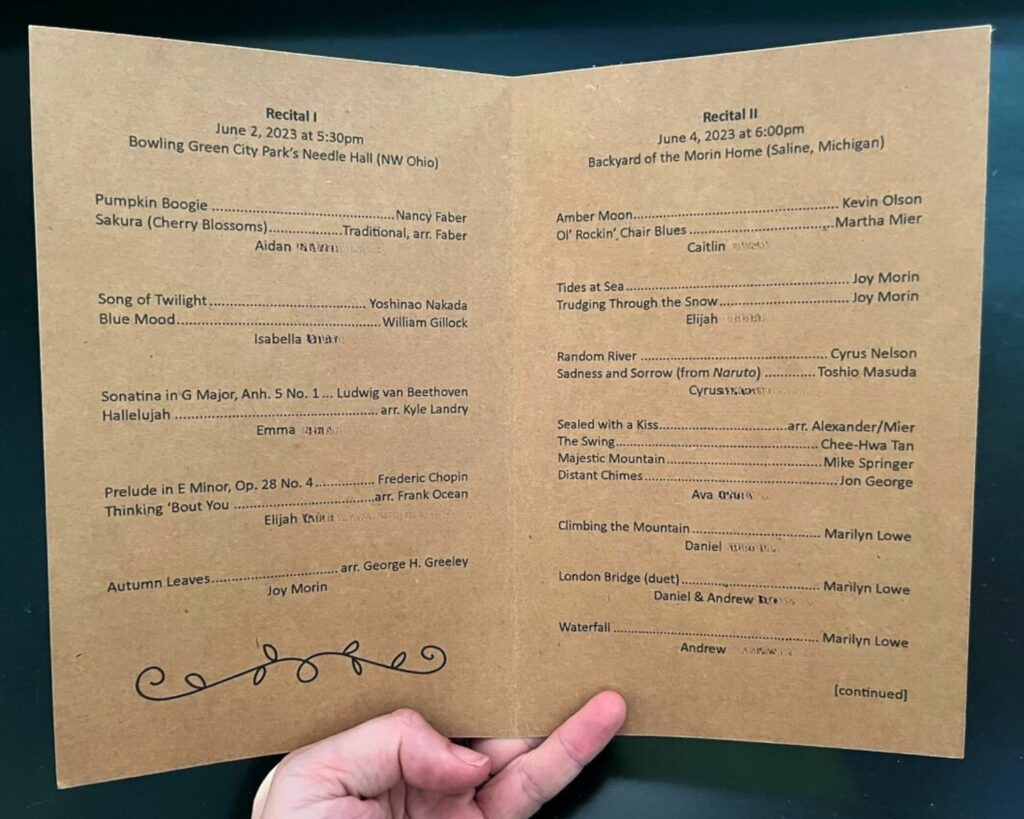 Recital I
June 2, 2023 at 5:30pm
Bowling Green City Park's Needle Hall (NW Ohio)
Pumpkin Boogie ........ Nancy Faber
Sakura (Cherry Blossoms) ........ Traditional, arr. Faber
Aidan
Song of Twilight ........ Yoshinao Nakada
Blue Mood ........ William Gillock
Isabella
Sonatina in G Major, Anh. 5 No. 1 ... Ludwig van Beethoven
Hallelujah ........ arr. Kyle Landry
Emma
Prelude in E Minor, Op. 28 No. 4 ........ Frederic Chopin
Thinking 'Bout You ........ arr. Frank Ocean
Elijah
Autumn Leaves ........ arr. George H. Greeley
Joy Morin
Recital II
June 4, 2023 at 6:00pm
Backyard of the Morin Home (Saline, Michigan)
Amber Moon ........ Kevin Olson
Ol' Rockin' Chair Blues ........ Martha Mier
Caitlin
Tides at Sea ........ Joy Morin
Trudging Through the Snow ........ Joy Morin
Elijah
Random River ........ Cyrus Nelson
Sadness and Sorrow (from Naruto) ........ Toshio Masuda
Cyrus
Sealed with a Kiss ........ arr. Alexander/Mier
The Swing ........ Chee-Hwa Tan
Majestic Mountain ........ Mike Springer
Distant Chimes ........ Jon George
Ava
Climbing the Mountain ........ Marilyn Lowe
Daniel
London Bridge (duet) ........ Marilyn Lowe
Daniel & Andrew
Waterfall ........ Marilyn Lowe
Andrew
[continued]